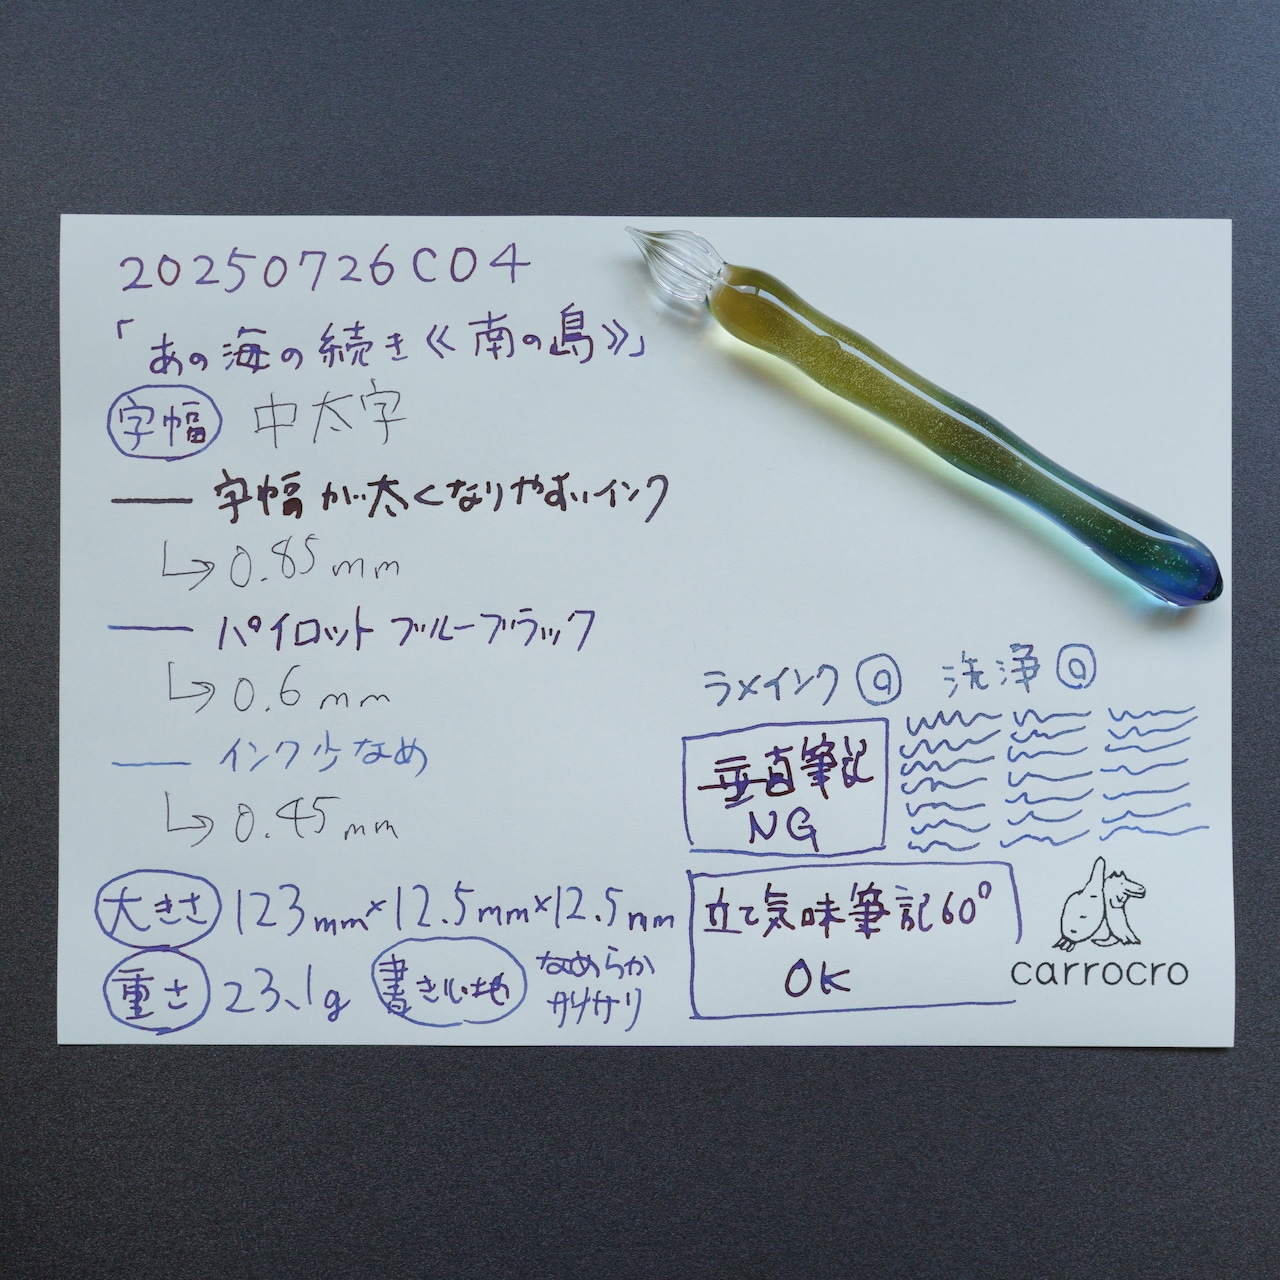 20250726C04
「あの海の続き《南の島》」
字幅 中太字
字幅が太くなりやすいインク
↳0.85mm
パイロットブルーブラック
↳0.6mm
インク少なめ
↳0.45mm
大きさ 123mm×12.5mm×12.5mm
重さ 23.1g
書き心地 なめらか
サリサリ
ラメインク◎ 洗浄◎
垂直筆記
NG
立て気味筆記60°
OK
carrocro